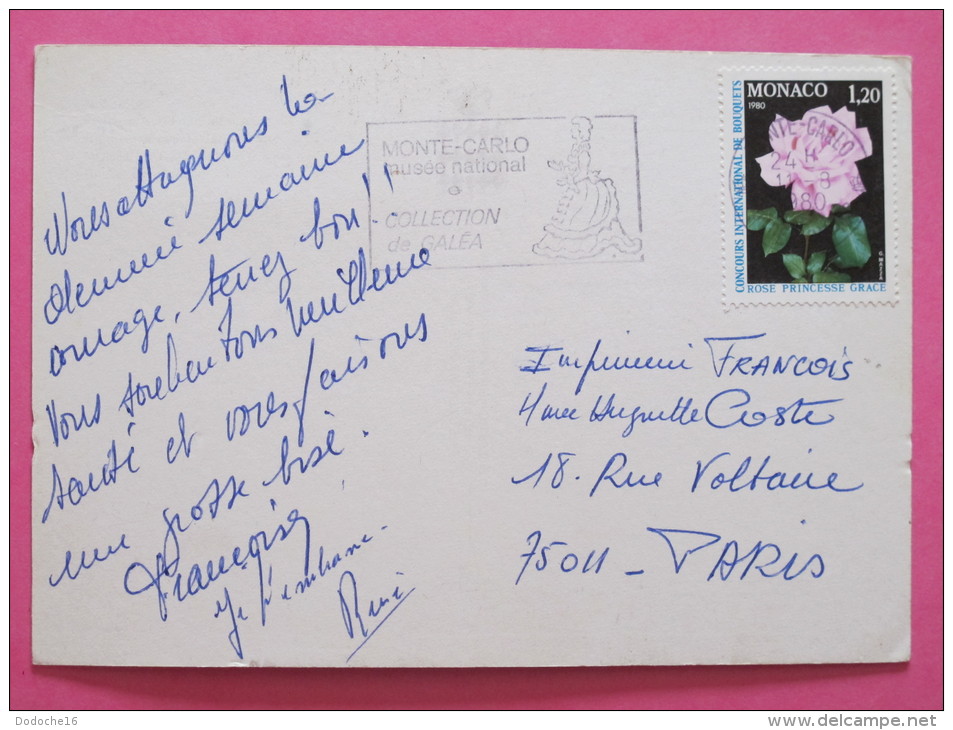 la
semaine
courage, tenez bon!!
Vous souhaitons meilleure
santé et vous faisons
une grosse bise.
Françoise
Je t'embrasse.
MONTE-CARLO
musée national
COLLECTION
de GALÉA
MONACO
1980
1,20
CONCOURS INTERNATIONAL DE BOUQUETS
ROSE PRINCESSE GRACE
MONTE-CARLO
24 H
1980
Imprimeri FRANCOIS
Huguette Coste
18. Rue Voltaire
75011 - PARIS
Dodoche16
delcampe.net